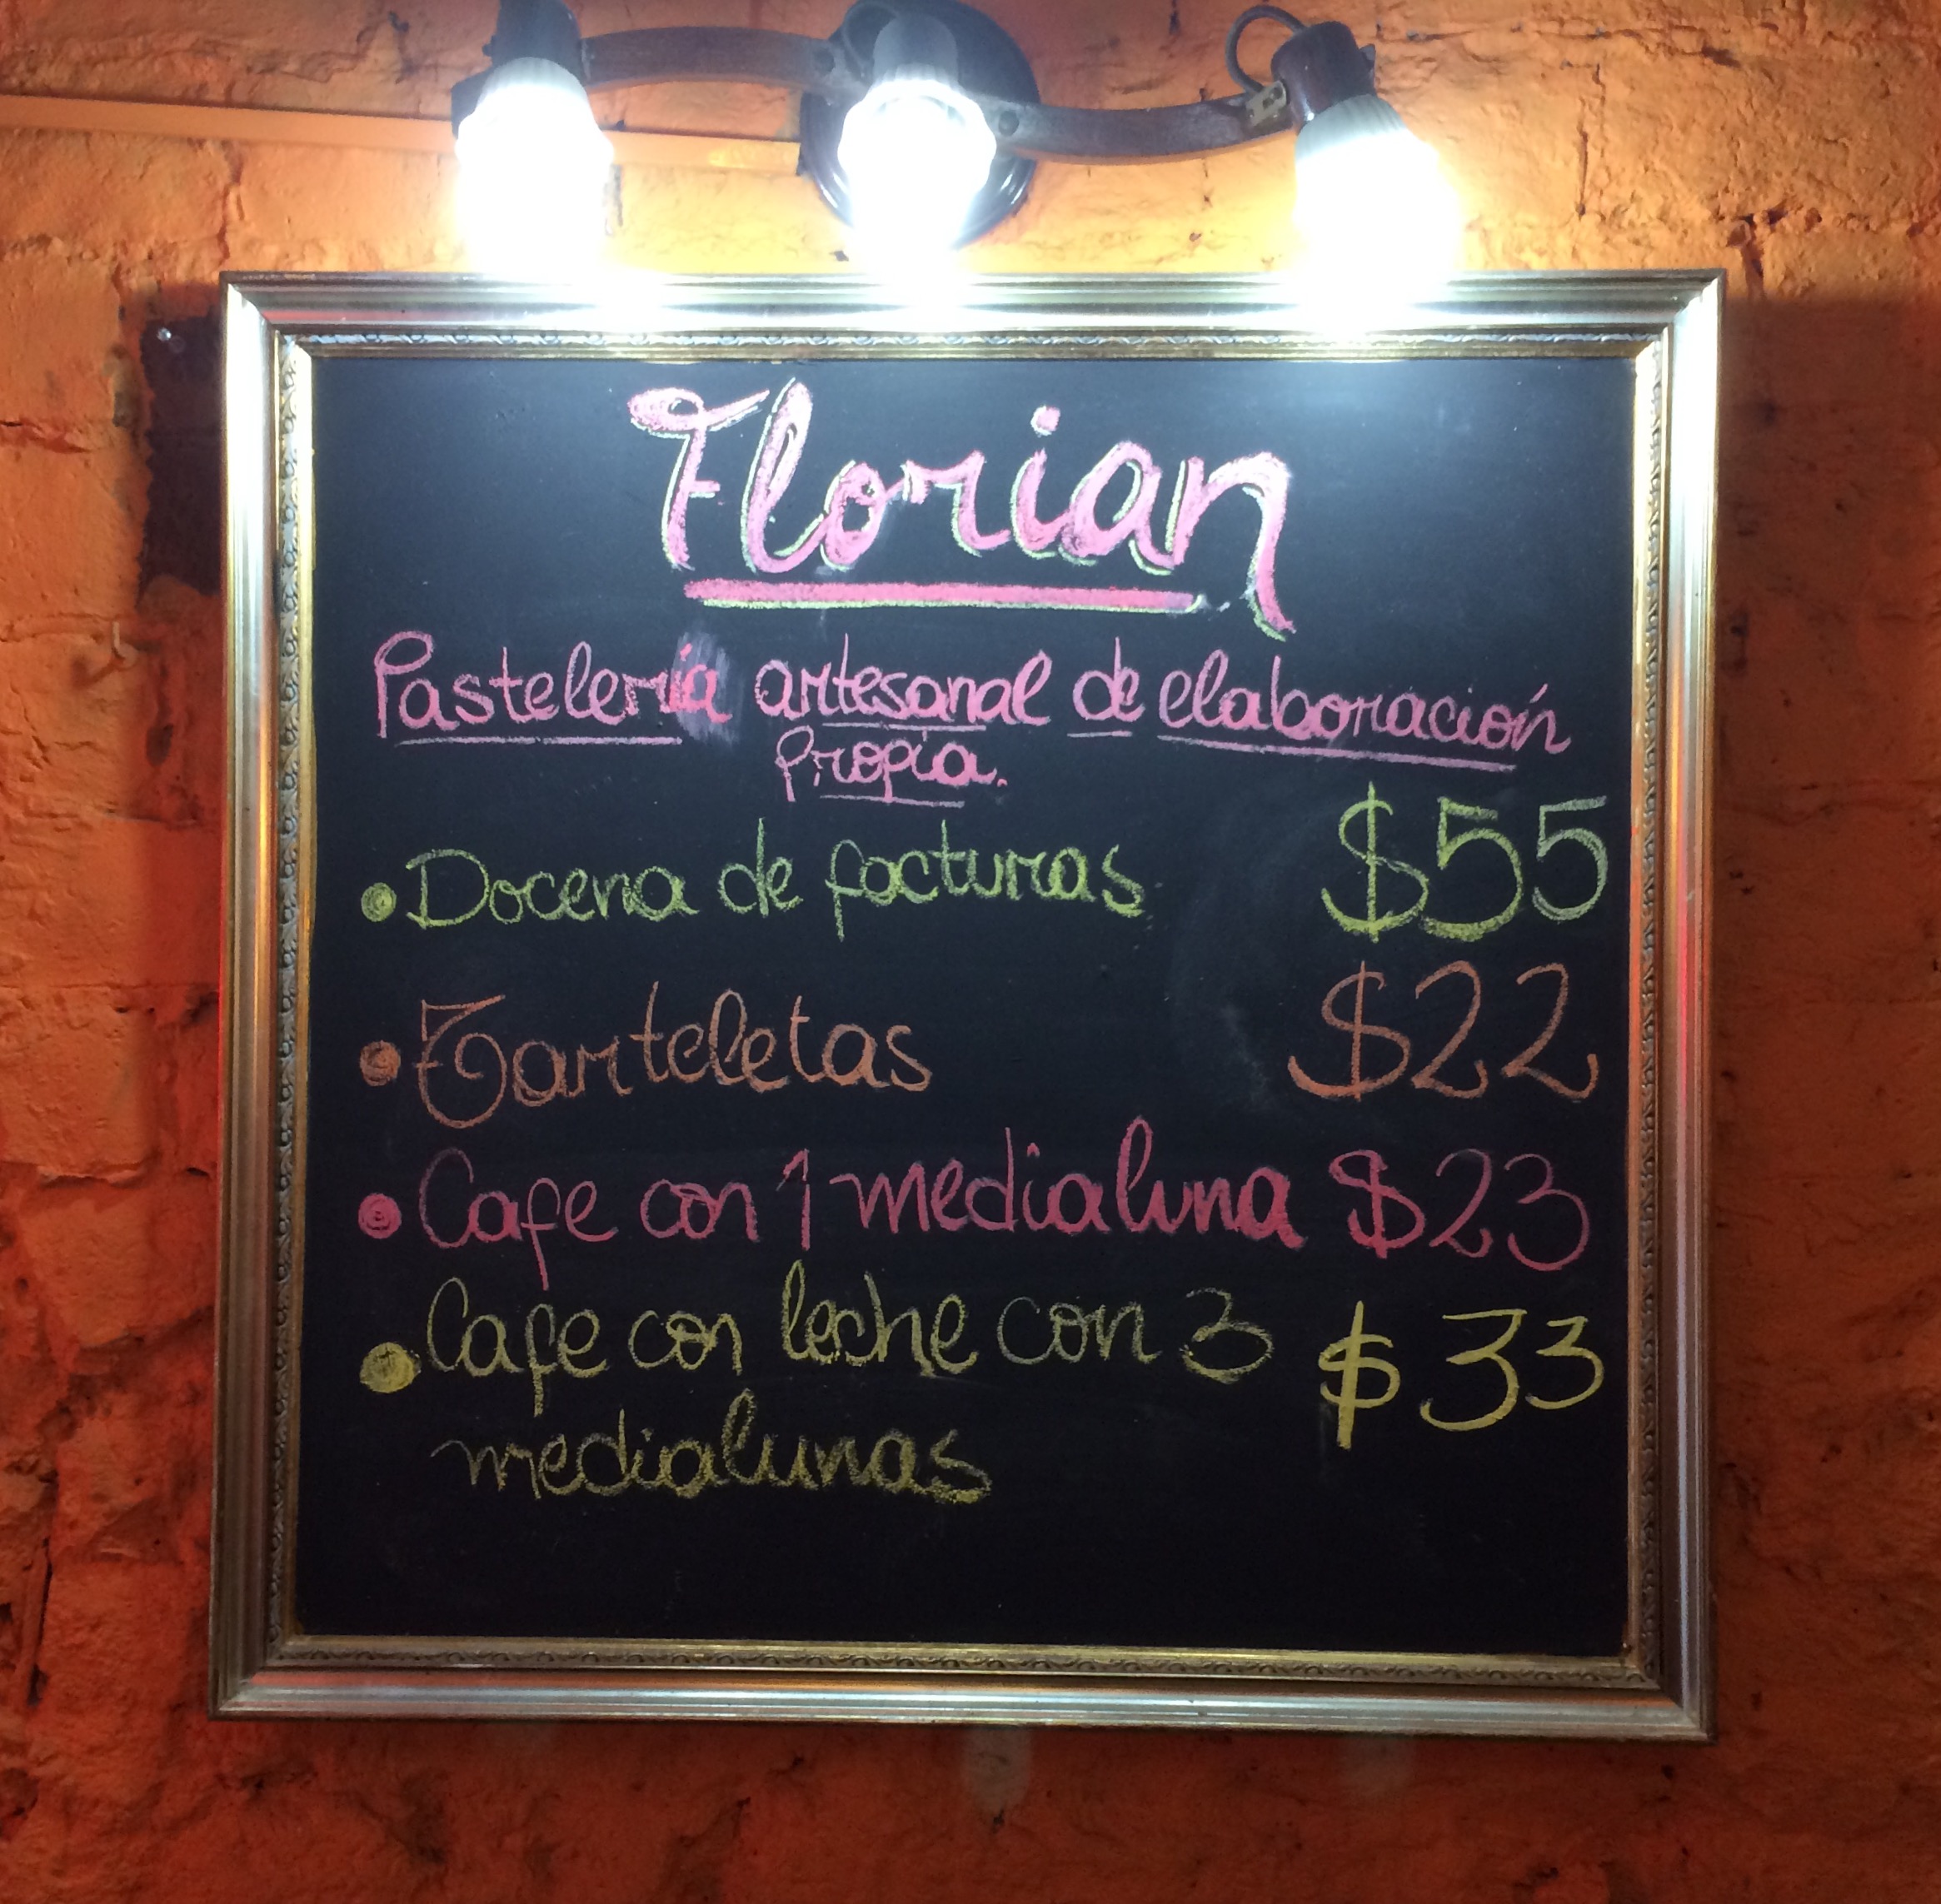 Florian
Pastelería artesanal de elaboración
propia.
• Docena de facturas $55
• Tarteletas $22
• Cafe con 1 medialuna $23
• Cafe con leche con 3 $33
medialunas